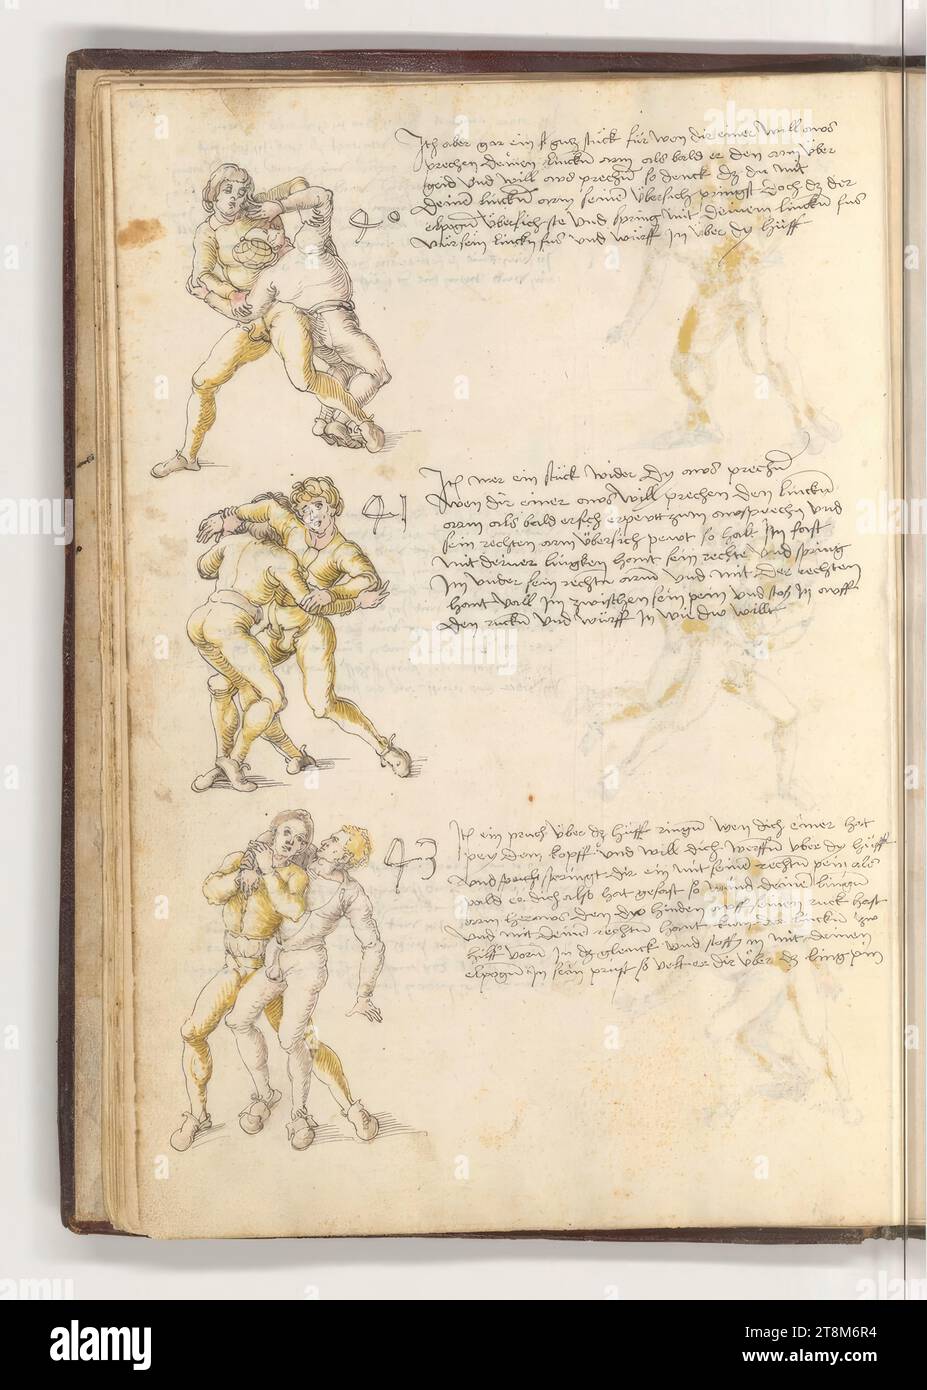 Itm aber gar ein gutz stück für wen dir einer will aws
prechen deinen linckn arm als bald er den arm über
geid und will aws prechn so denck dz du mit
deine linckn arm seine übersich pringst doch dz der
elpogn übersich ste und spring mit deinem linckn fus
für sein linckn fus und würff in über dy hüff
40
Itm mer ein stück wider dy aws prechn
wen dir einer aws will prechen den linckn
arm als bald er sich erpewtt zum awsprechn und
sein rechten arm übersich pewt so halt Im fast
mit deiner lingken hant sein rechte und spring
Im under sein rechtn arm und mit der rechten
hant vall Im zwischen sein pein und stos In awff
den ruckn und würff In wie dw willt
41
Itm ein pruch über dz hüff ringn wen dich einer hat
pey dem kopff und will dich werffn über dy hüff
und springt dir ein mit seine rechtn pein als
pald er dich also hat gefast so wind deine lingn
arm heraws den dw hinden awff seinen ruck hast
und mit deine rechtn hant kum der linckn zw
hilff vorn In dz glenck und stoss In mit deinen
elpogn In sein prust so velt er dir über dz ling pin
43
alamy
Image ID: 2T8M6R4
www.alamy.com